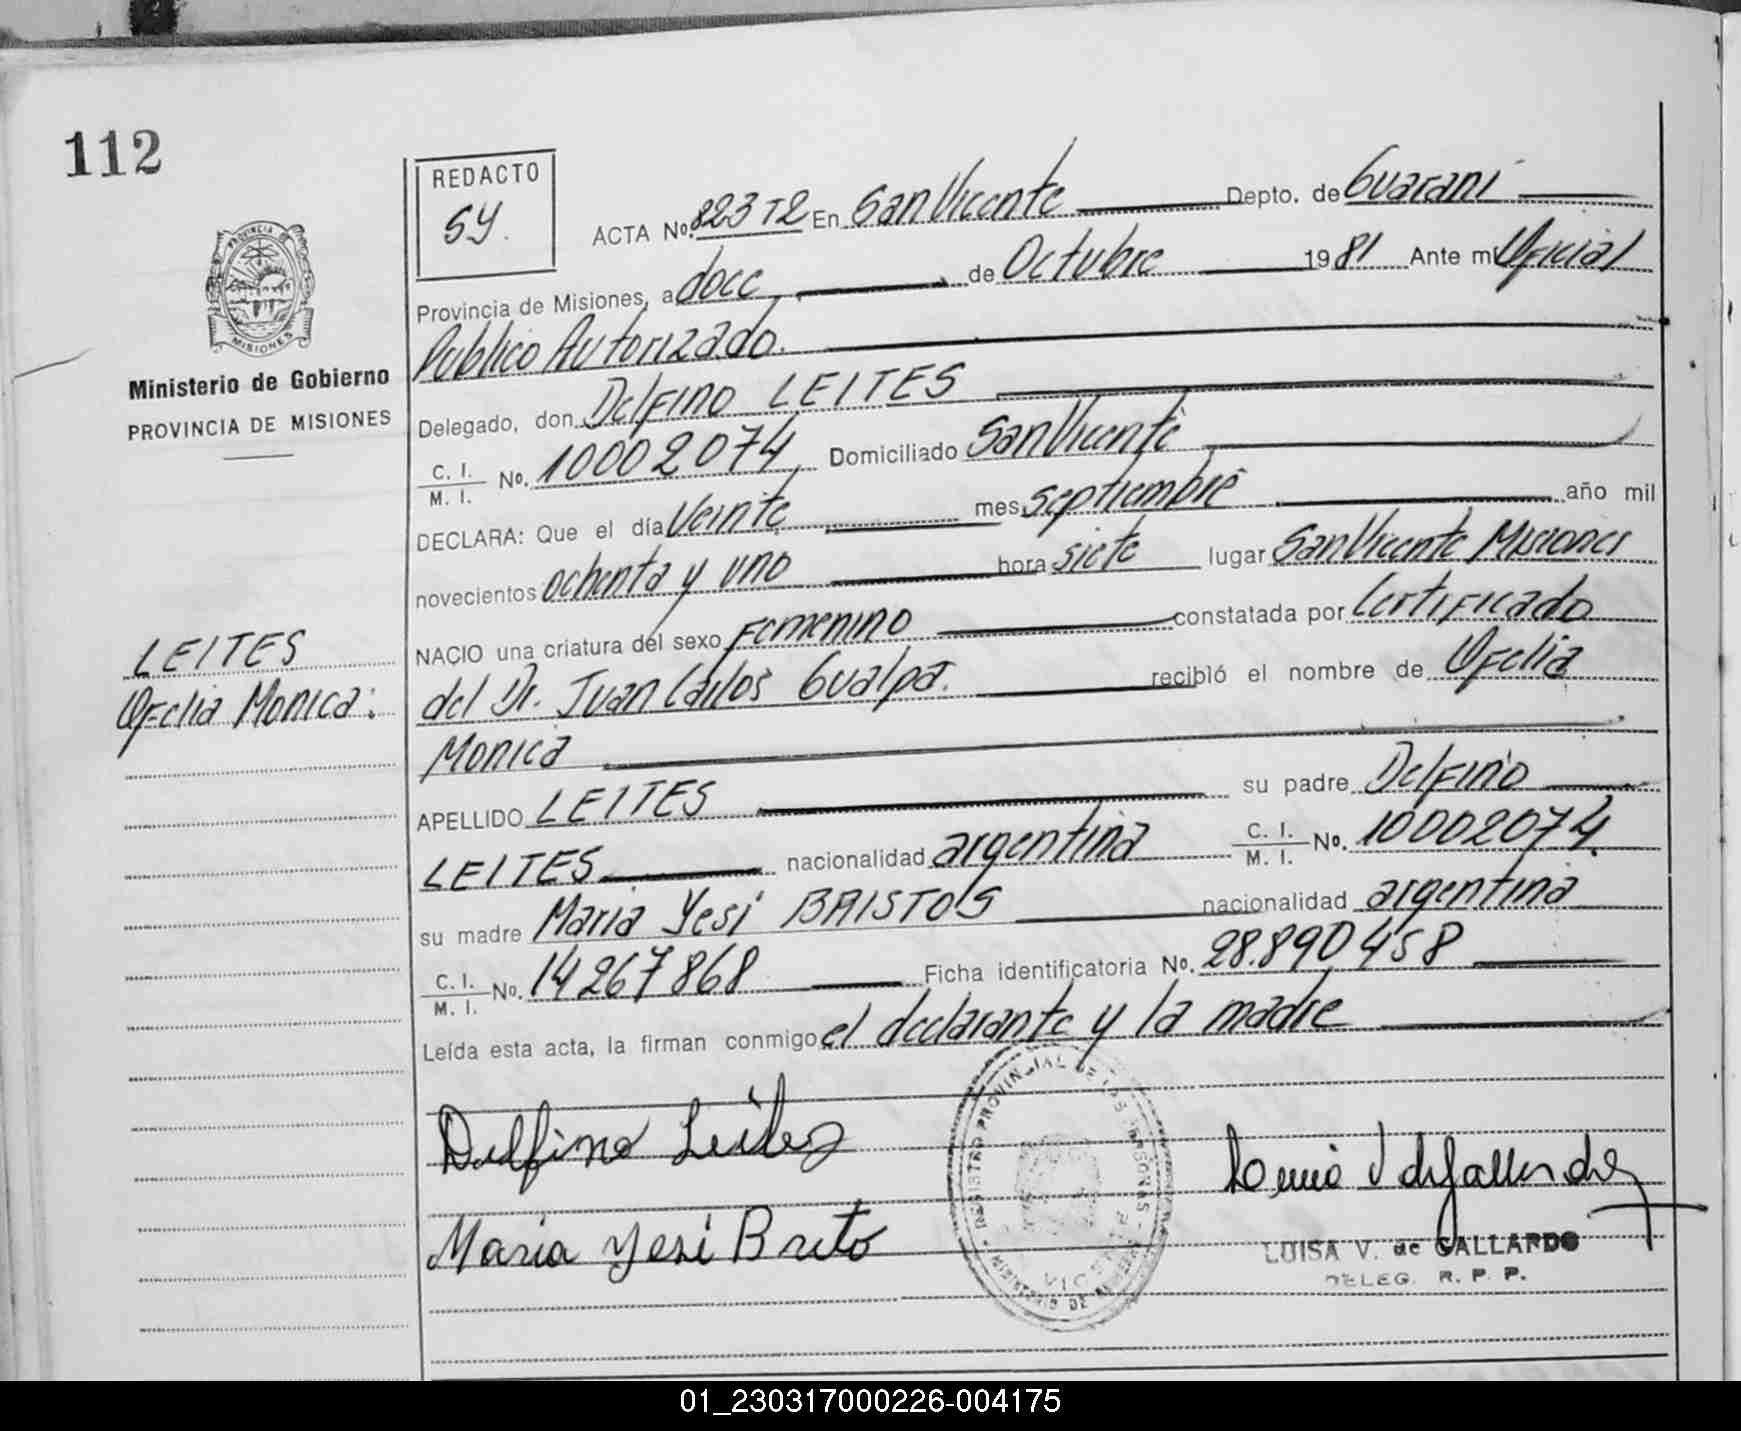 112
REDACTO
SY.
ACTA No. 823 T2 En San Vicente Depto. de Guarani
Provincia de Misiones, a doce de Octubre 1981 Ante mi Oficial
Publico Autorizado.
PROVINCIA DE
MISIONES
Ministerio de Gobierno
PROVINCIA DE MISIONES
Delegado, don Delfino LEITES
C. I. / M. I. No. 10002074 Domiciliado San Vicente
DECLARA: Que el día Veinte mes Septiembre año mil
novecientos ochenta y uno hora siete lugar San Vicente Misiones
NACIO una criatura del sexo Femenino constatada por Certificado
del Dr. Juan Carlos Gualpa. recibió el nombre de Ofelia
Monica
LEITES
Ofelia Monica:
APELLIDO LEITES su padre Delfino
LEITES nacionalidad argentina C. I. / M. I. No. 10002074
su madre Maria Yesi BRISTOS nacionalidad argentina
C. I. / M. I. No. 14267868 Ficha identificatoria No. 28.890458
Leída esta acta, la firman conmigo el declarante y la madre
Delfino Leites
Maria Yesi Brito
REGISTRO PROVINCIAL DE LAS PERSONAS
LUISA V. de GALLARDO
DELEG. R. P. P.
01_230317000226-004175